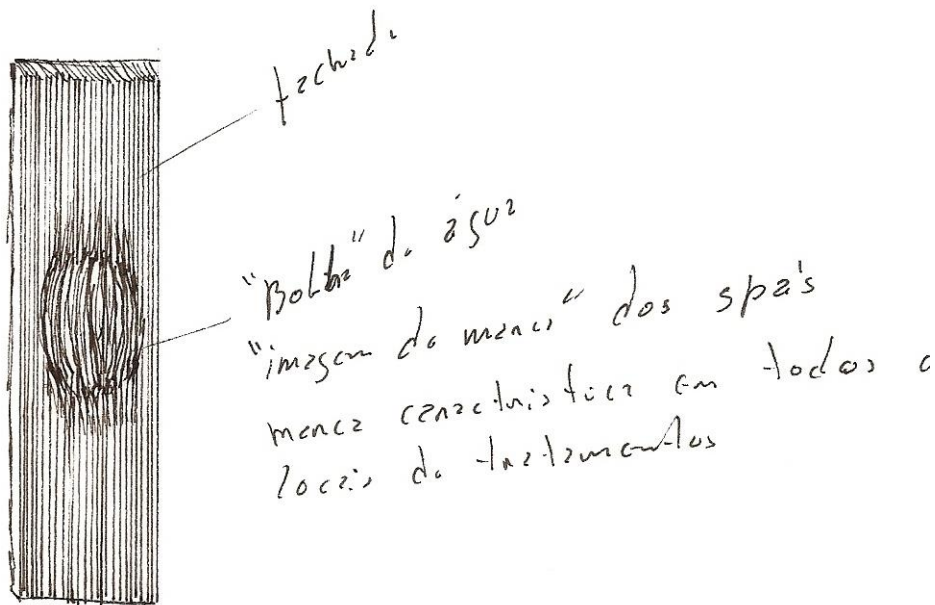 fachada
"Bolha" de água
"imagem da marca" dos spa's
marca caracteristica em todos o
locais de tratamentos